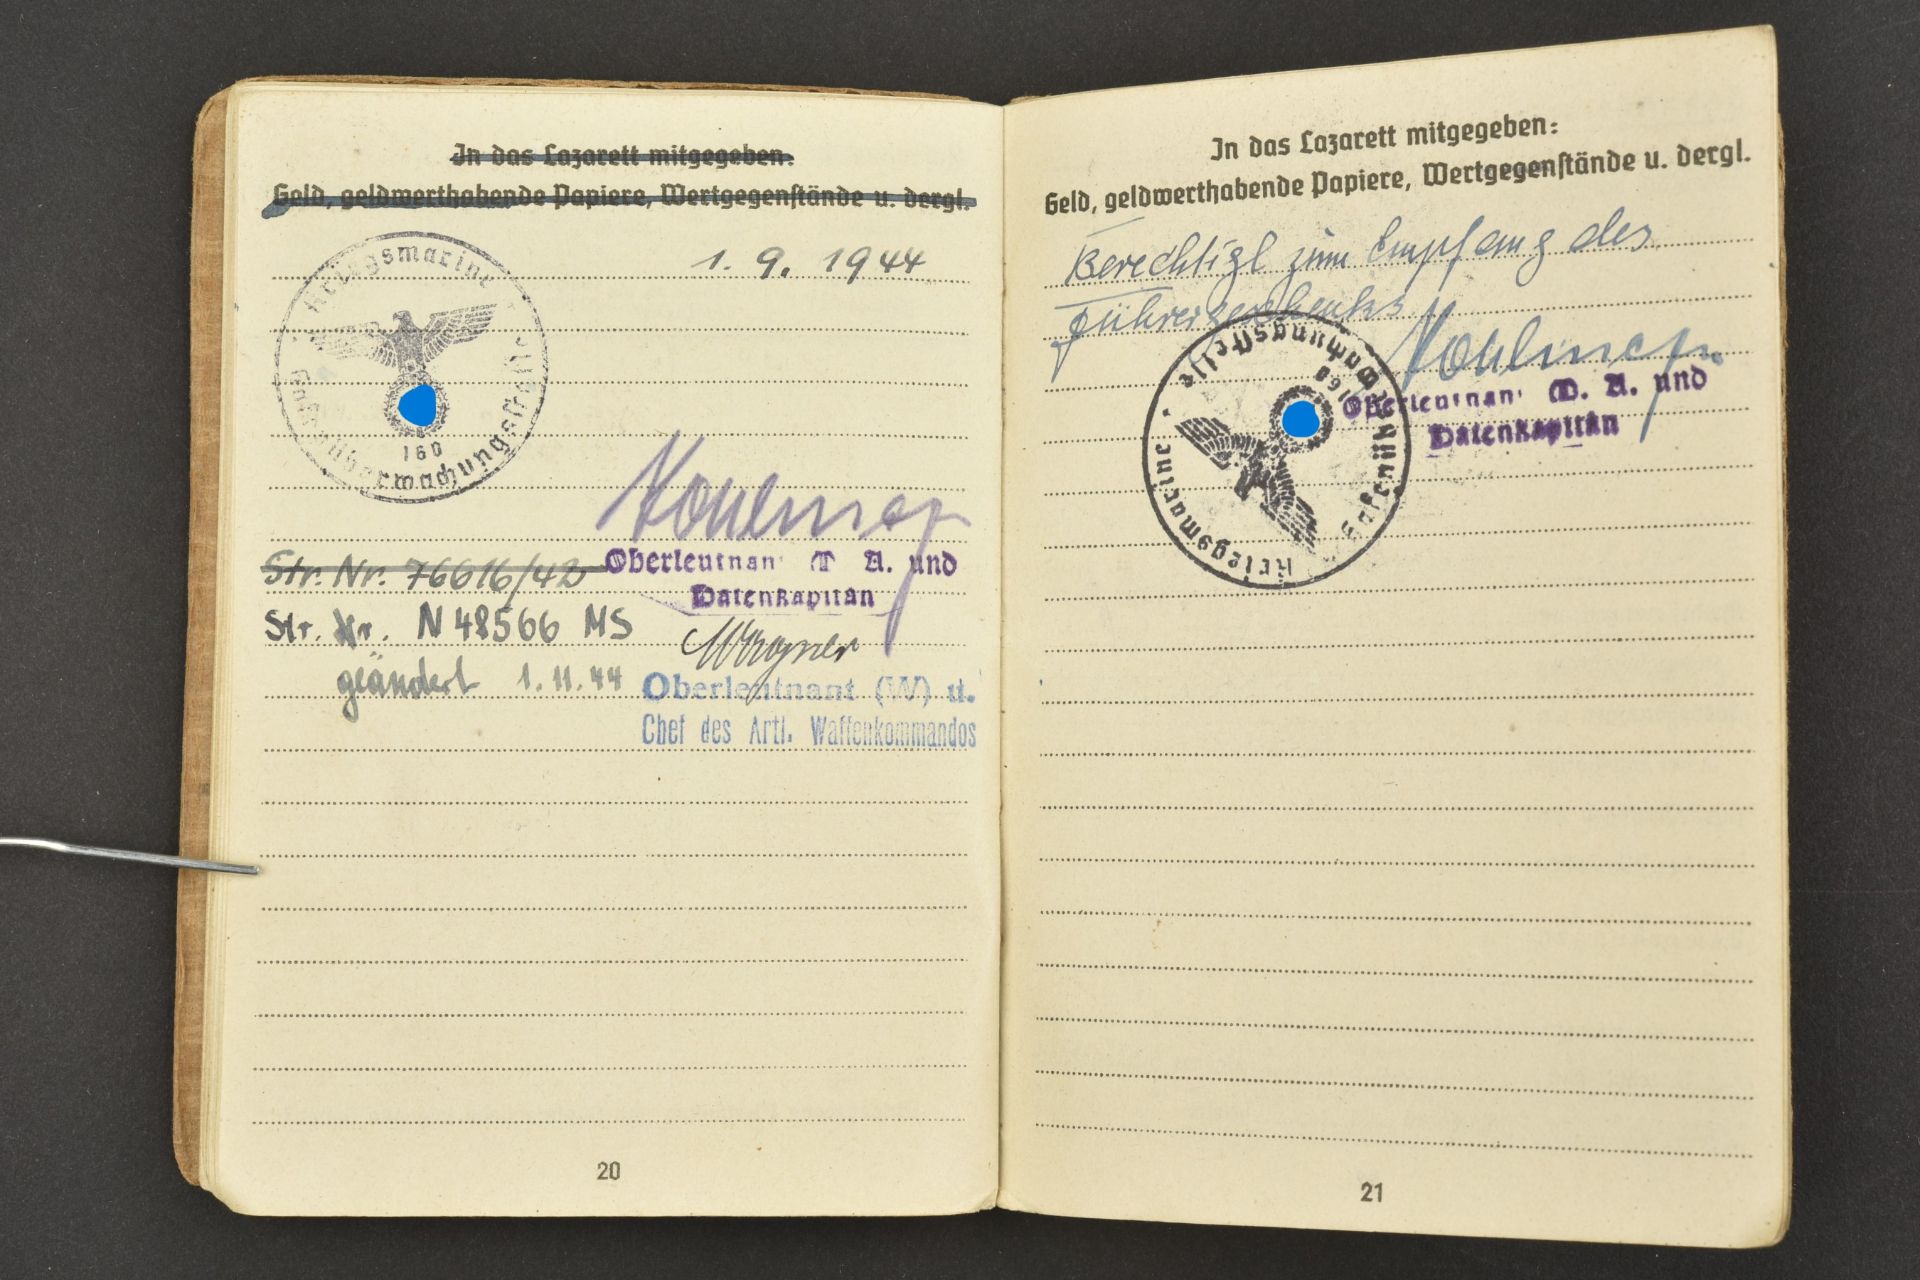 In das Lazarett mitgegeben:
Geld, geldwerthabende Papiere, Wertgegenstände u. dergl.
Kriegsmarine
Hafenüberwachungsstelle
160
1. 9. 1944
Oberleutnan M A. und
Hafenkapitän
Str. Nr. 76616/42
Str. Nr. N 48566 MS
geändert 1.11.44
Wagner
Oberleutnant (W) u.
Chef des Artl. Waffenkommandos
20
In das Lazarett mitgegeben:
Geld, geldwerthabende Papiere, Wertgegenstände u. dergl.
Berechtigt zum Empfang des
Führergeschenks
Kriegsmarine
Hafenüberwachungsstelle
160
Oberleutnan M. A. und
Hafenkapitän
21